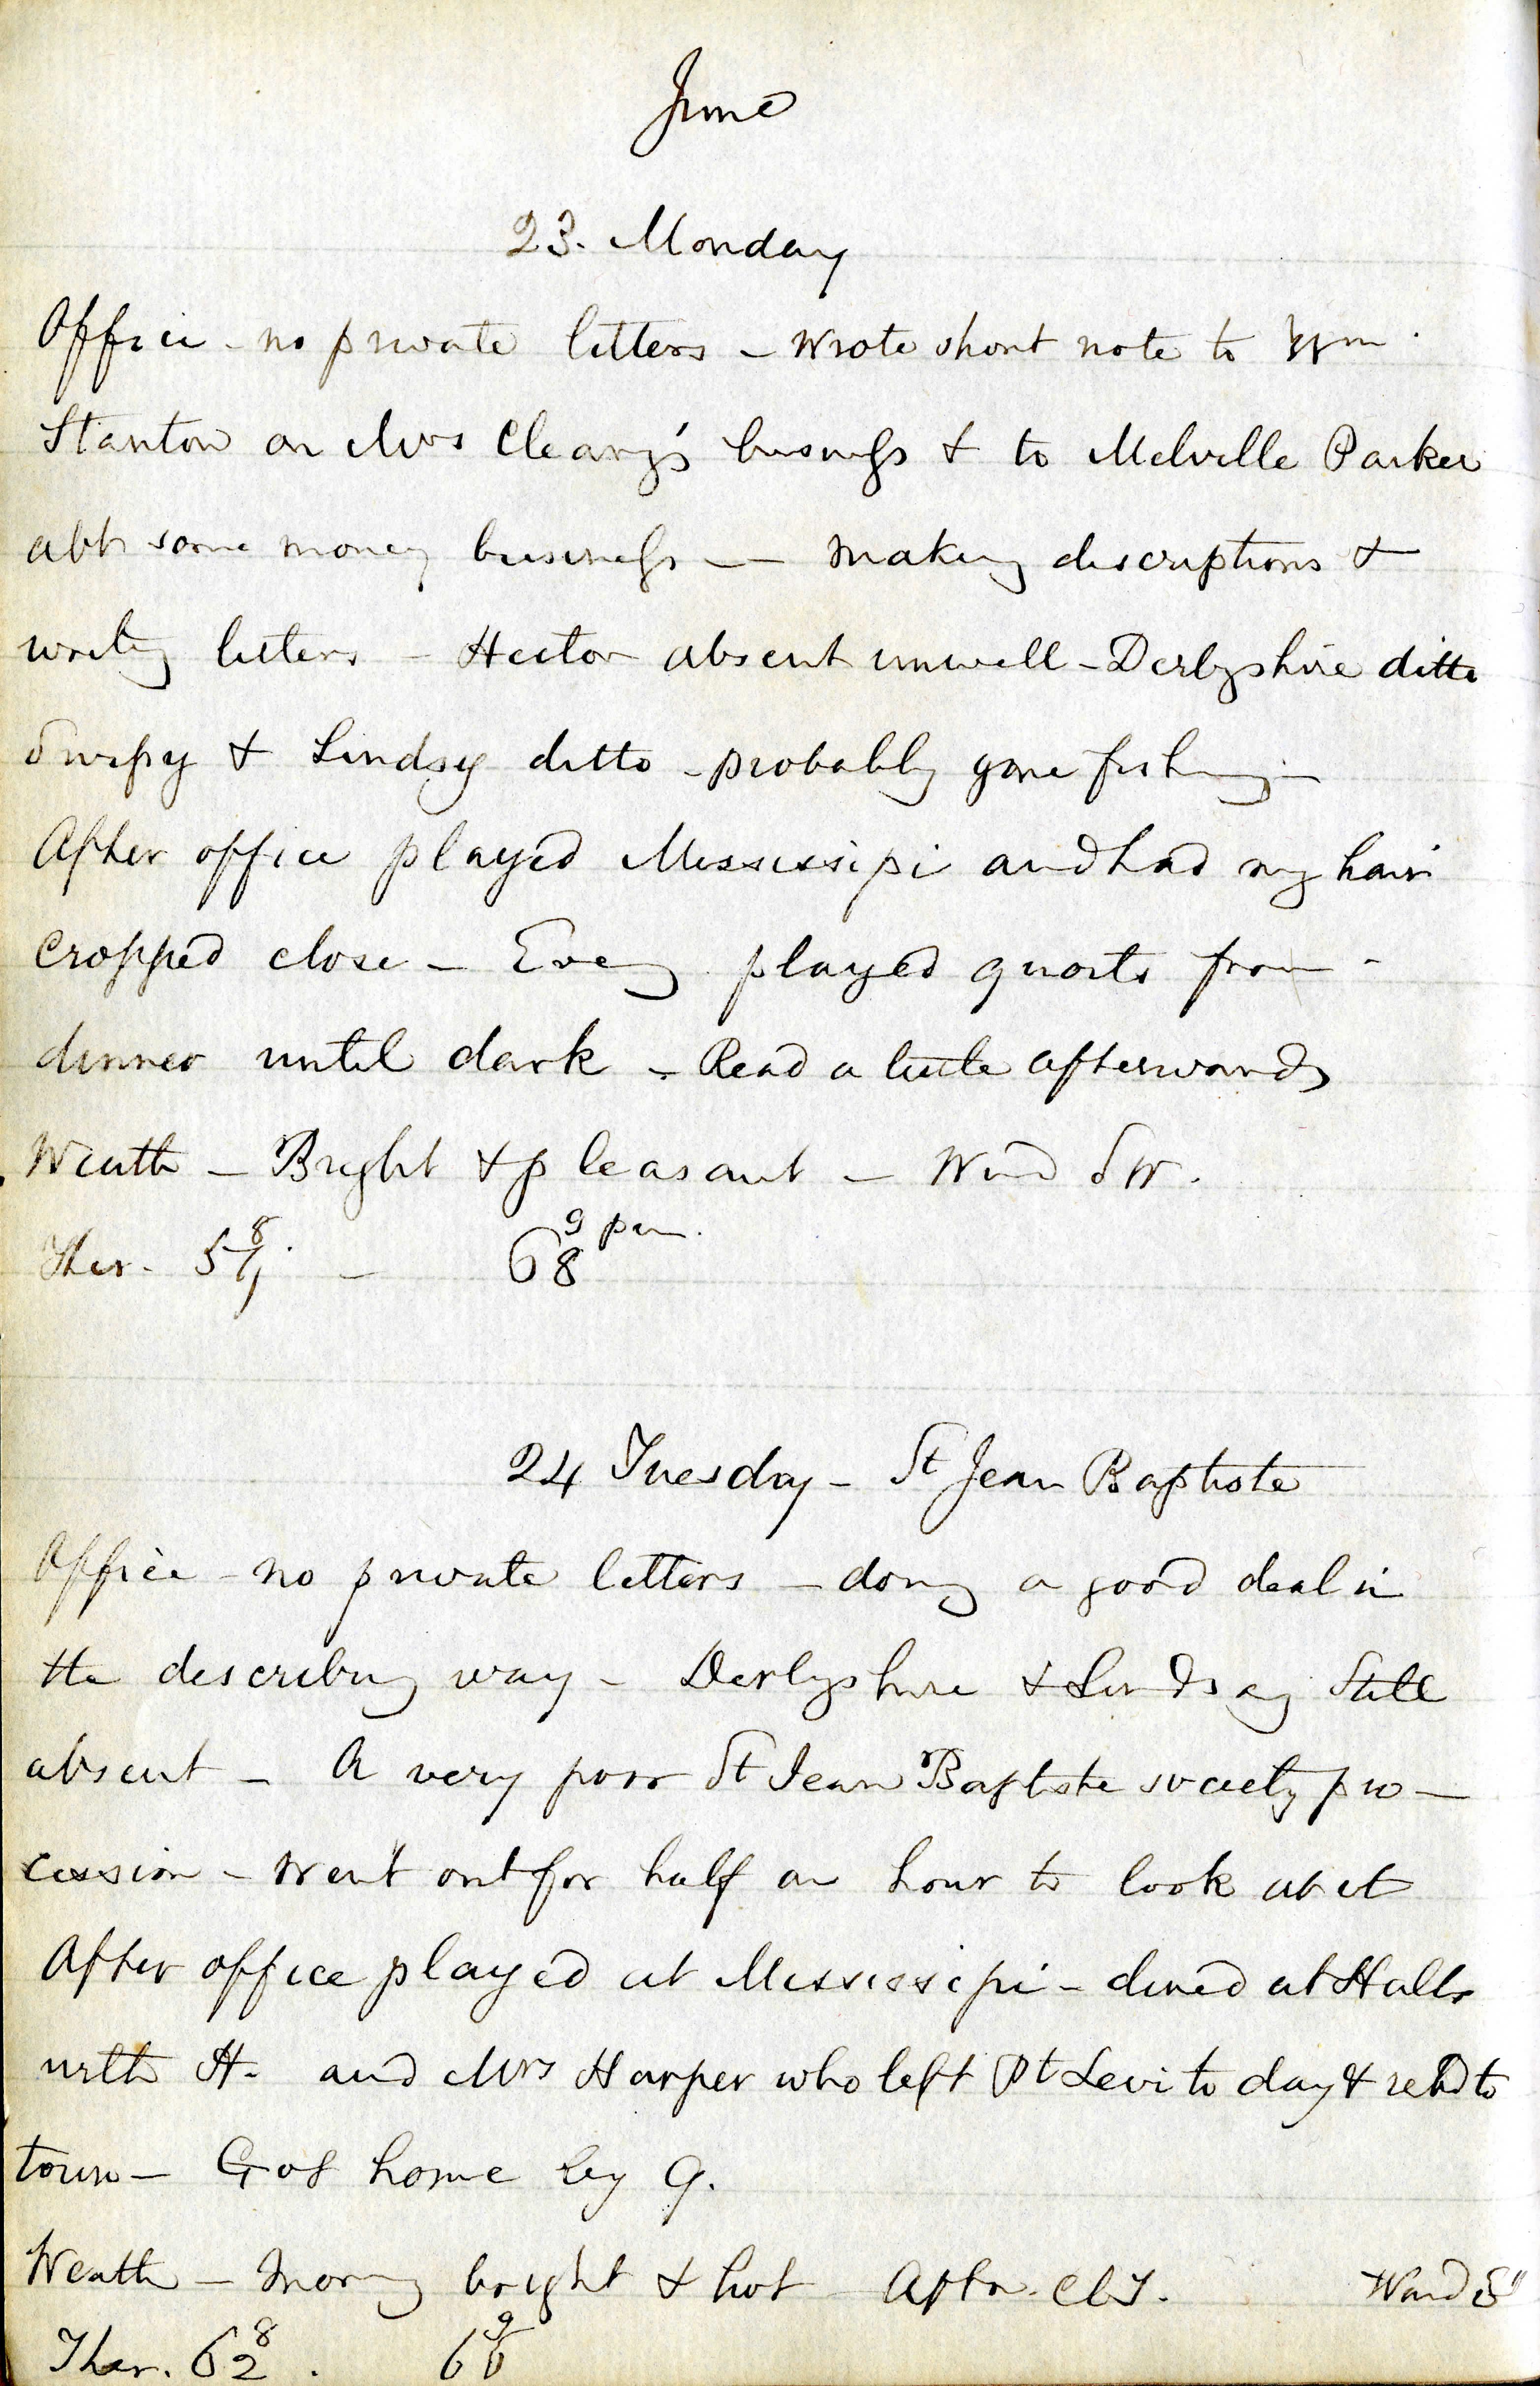 June
23. Monday
Office - no private letters - wrote short note to Wm
Stanton on Mrs Cleary's business & to Melville Parker
abt some money business — making descriptions &
writing letters - Hector absent unwell - Derbyshire ditto
& Lindsy ditto - probably gone fishing -
After office played Mississipi and had my hair
cropped close - Eveng played quoits from -
dinner until dark - Read a little afterwards
Weath - Bright & pleasant - Wind SW.
Ther. 8 - 68 9 pm.
24 Tuesday - St Jean Baptiste
Office - no private letters - doing a good deal in
the describing way - Derbyshire & Lindsay still
absent - A very poor St Jean Baptiste society pro-
cession - Went out for half an hour to look at it
After office played at Mississipi - dined at Halls
with H. and Mrs Harper who left Pt Levi to day & retd to
town - Got home by 9.
Weath - Morng bright & hot - Aftn. Cly. Wind
Ther. 62 8 . 9